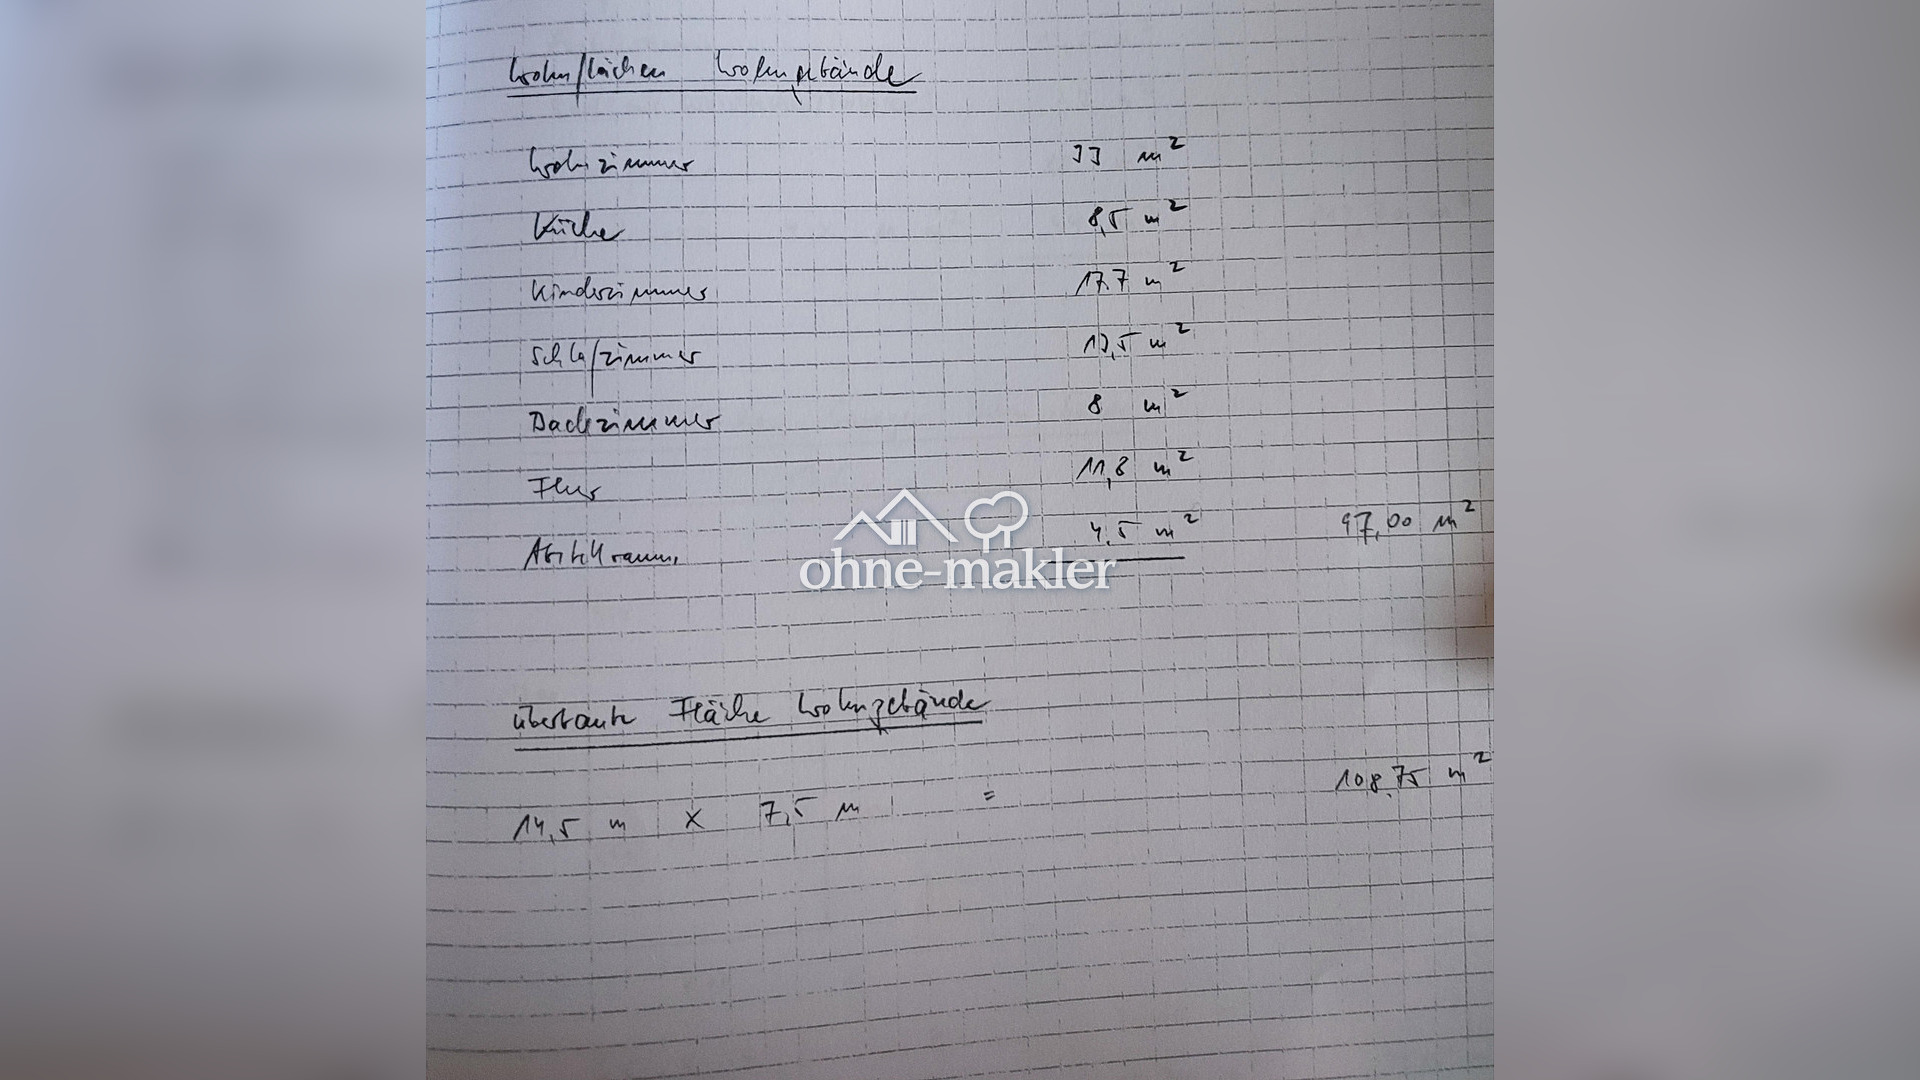 Wohnflächen Wohngebäude
Wohnzimmer 33 m²
Küche 8,5 m²
Kinderzimmer 17.7 m²
Schlafzimmer 13,5 m²
Dachzimmer 8 m²
Flur 11,8 m²
Abstellraum 4,5 m² 97,00 m²
ohne-makler
überbaute Fläche Wohngebäude
14,5 m x 7,5 m = 108,75 m²